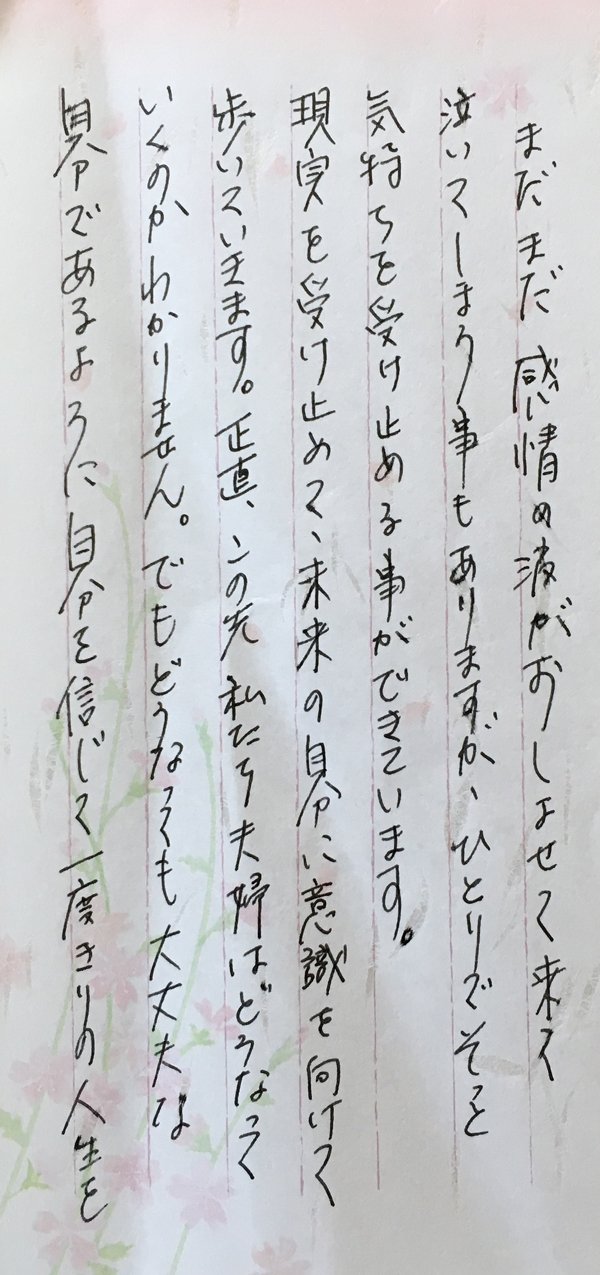 まだまだ感情の波がおしよせて来て
泣いてしまう事もありますが、ひとりでそっと
気持ちを受け止める事ができています。
現実を受け止めて、未来の自分に意識を向けて
歩いていきます。正直、この先私たち夫婦はどうなって
いくのかわかりません。でもどうなっても大丈夫な
自分であるように自分を信じて一度きりの人生を